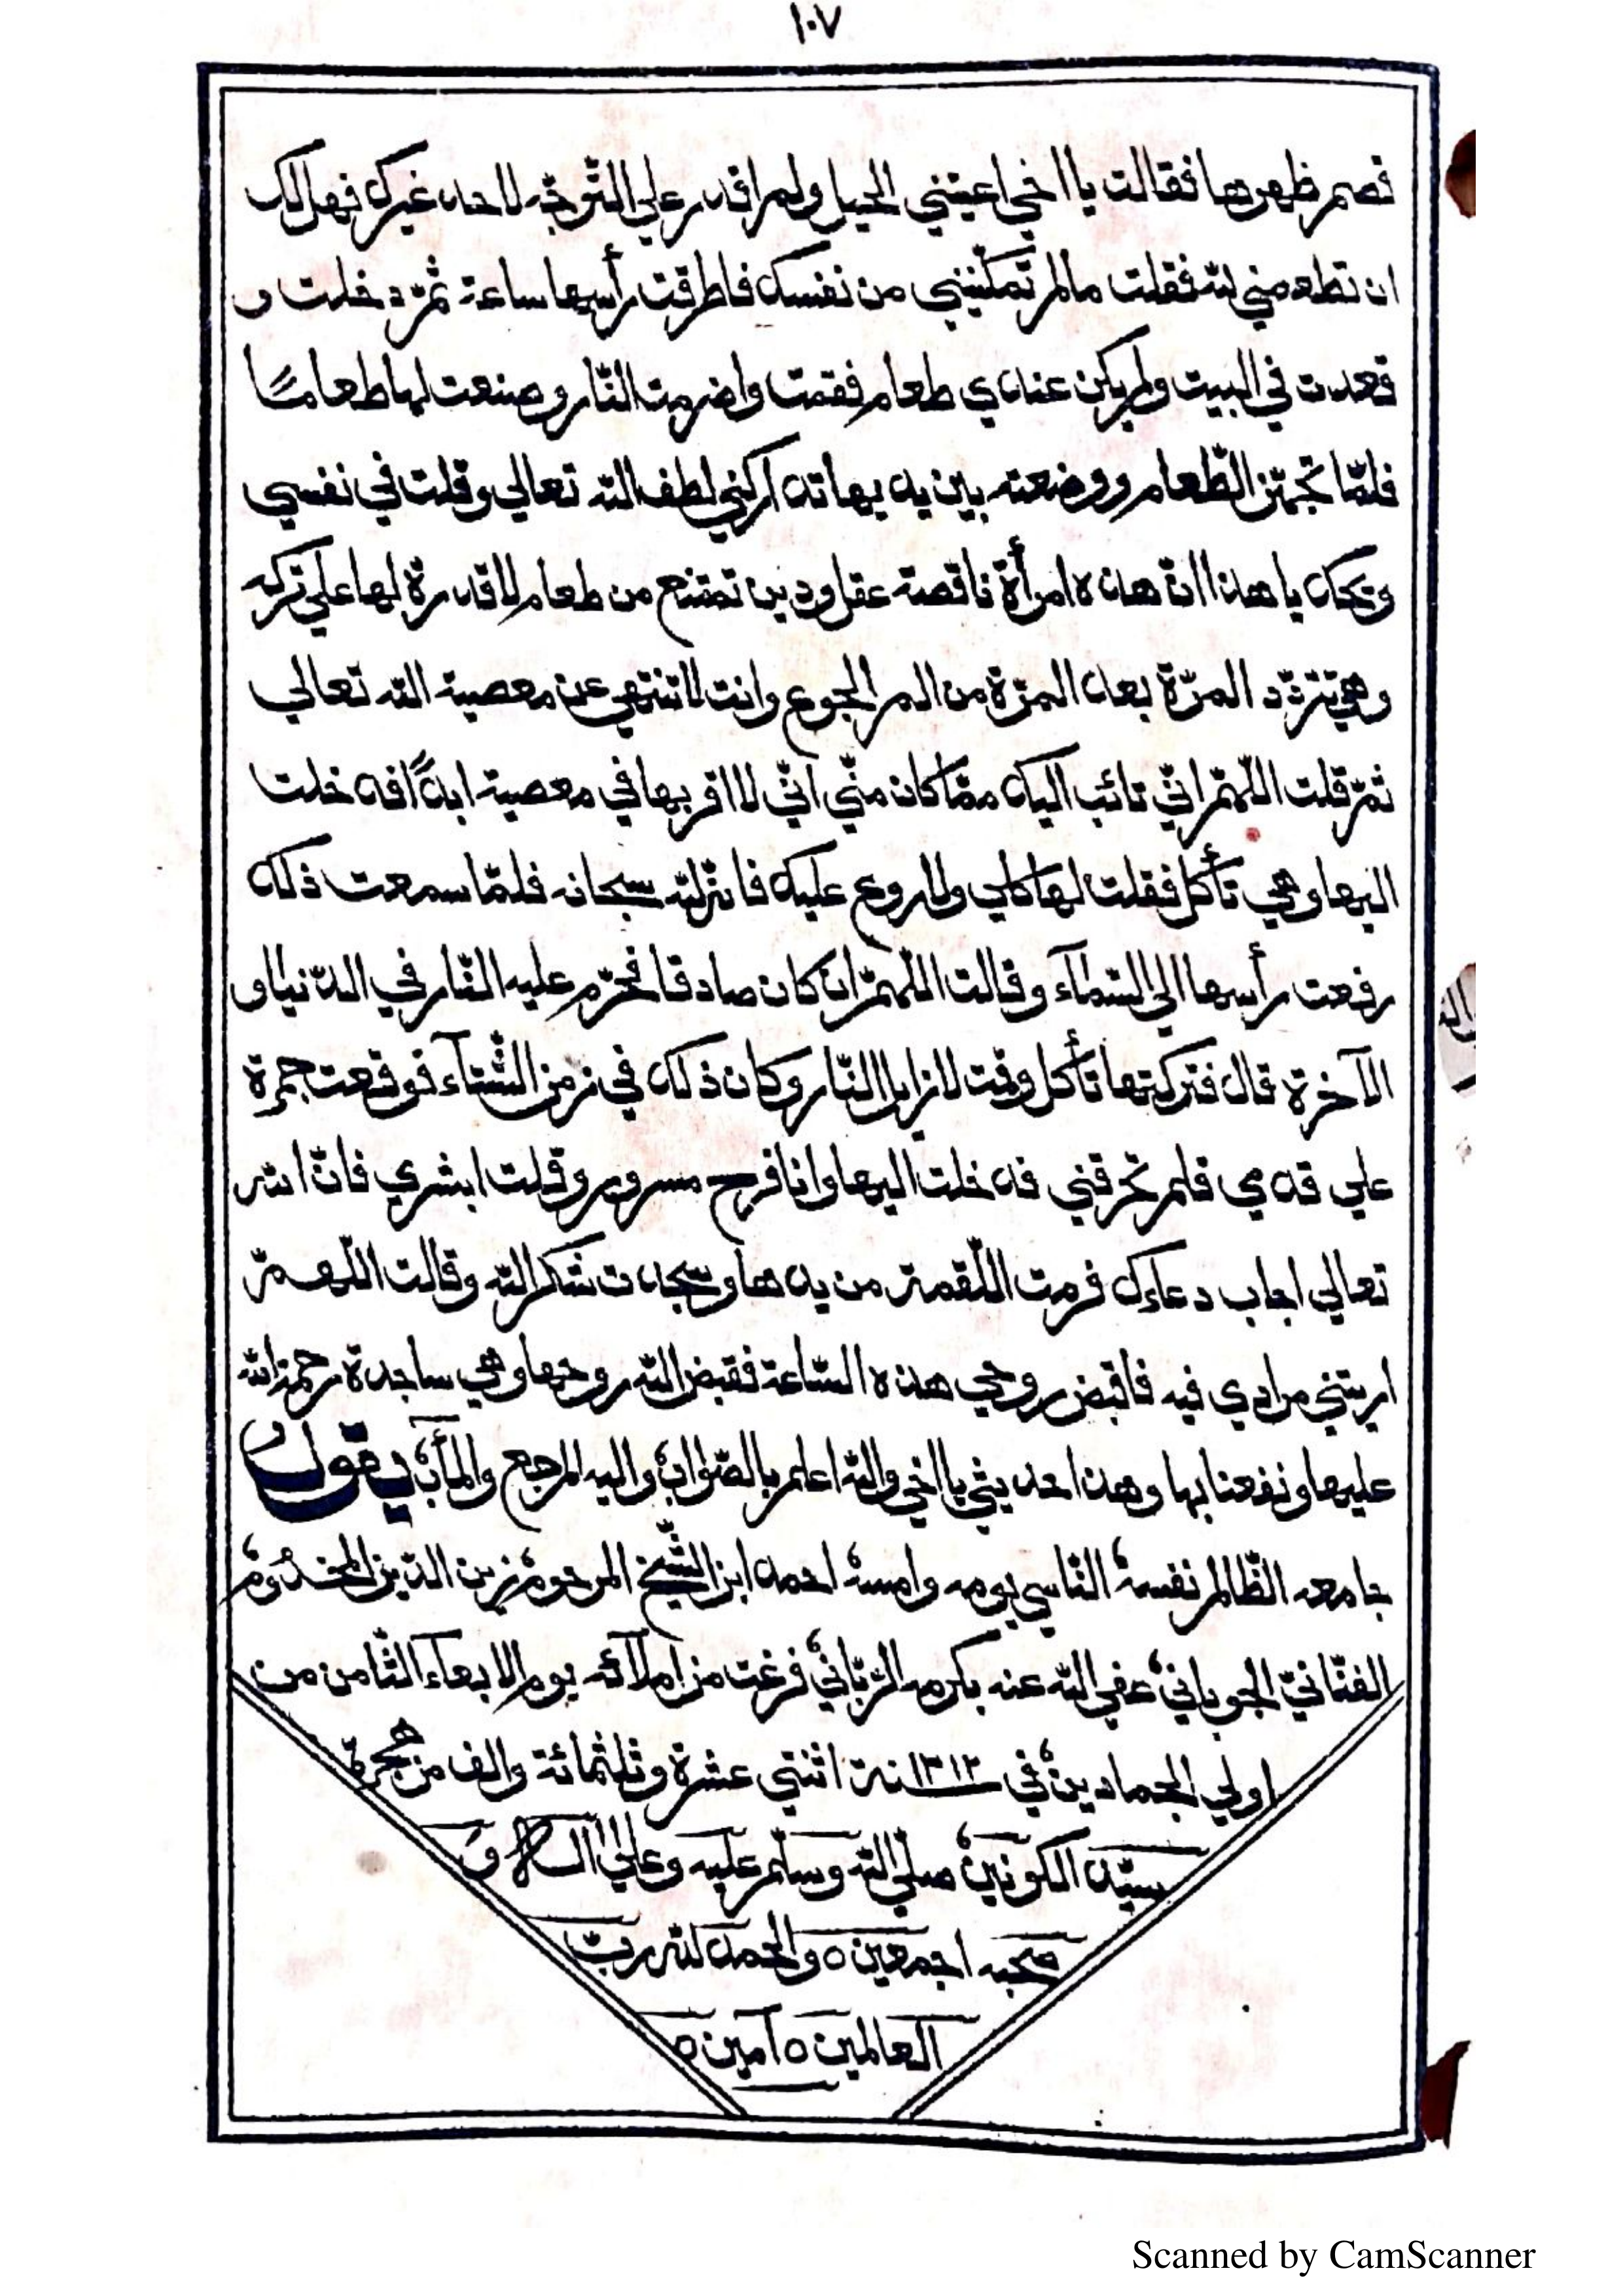 ١٠٧
قصم ظهرها فقالت يا اخي اعيتني الحيل ولم اقدر علي التّوجّه لاحد غيرك فهل لك
ان تطعمني لله فقلت مالم تمكّنيني من نفسك فاطرقت رأسها ساعة ثمّ دخلت و
قعدت في البيت ولم يكن عندي طعام فقمت واضرمت النّار وصنعت لها طعاما
فلمّا تجهّز الطّعام ووضعته بين يديها تداركني لطف الله تعالي وقلت في نفسي
ويحك يا هذا انّ هذه امرأة ناقصة عقل ودين تمتنع من طعام لا قدرة لها علي تركه
وهي تتردّد المرّة بعد المرّة من الم الجوع وانت لا تنتهي عن معصية الله تعالي
ثمّ قلت اللّهمّ انّي تائب اليك ممّا كان منّي انّي لا اقربها في معصية ابدًا فدخلت
اليها وهي تأكل فقلت لها كلي ولا روع عليك فانّه لله سبحانه فلمّا سمعت ذلك
رفعت رأسها الي السّمآء وقالت اللّهمّ ان كان صادقا فحرّم عليه النّار في الدّنيا و
الآخرة قال فتركتها تأكل وقمت لازيل النّار وكان ذلك في زمن الشّتآء فوقعت جمرة
علي قدمي فلم تحرقني فدخلت اليها وانا فرح مسرور وقلت ابشري فانّ الله
تعالي اجاب دعاءك فرمت اللّقمة من يدها وسجدت شكر الله وقالت اللّهمّ
اريتني مرادي فيه فاقبض روحي هذه السّاعة فقبض الله روحها وهي ساجدة رحمة الله
عليها ونفعنا بها وهذا حديثي يا اخي والله اعلم بالصّواب، واليه المرجع والمأب، يقول
جامعه الظّالم نفسه، النّاسي يومه وامسه، احمد ابن الشّيخ المرحوم، زين الدّين المخدوم،
الفنّانيّ الجوباني، عفي الله عنه بكرمه الرّبّاني، فرغت من املآئه يوم الاربعآء الثّامن من
اولي الجمادين، في ١٣١٢ سنة اثنتي عشرة وثلثمائة والف من هجرة
سيّد الكونين، صلّي الله وسلّم عليه وعلي آله و
صحبه اجمعين ٥ والحمد لله ربّ
العالمين ٥ آمين ٥
Scanned by CamScanner